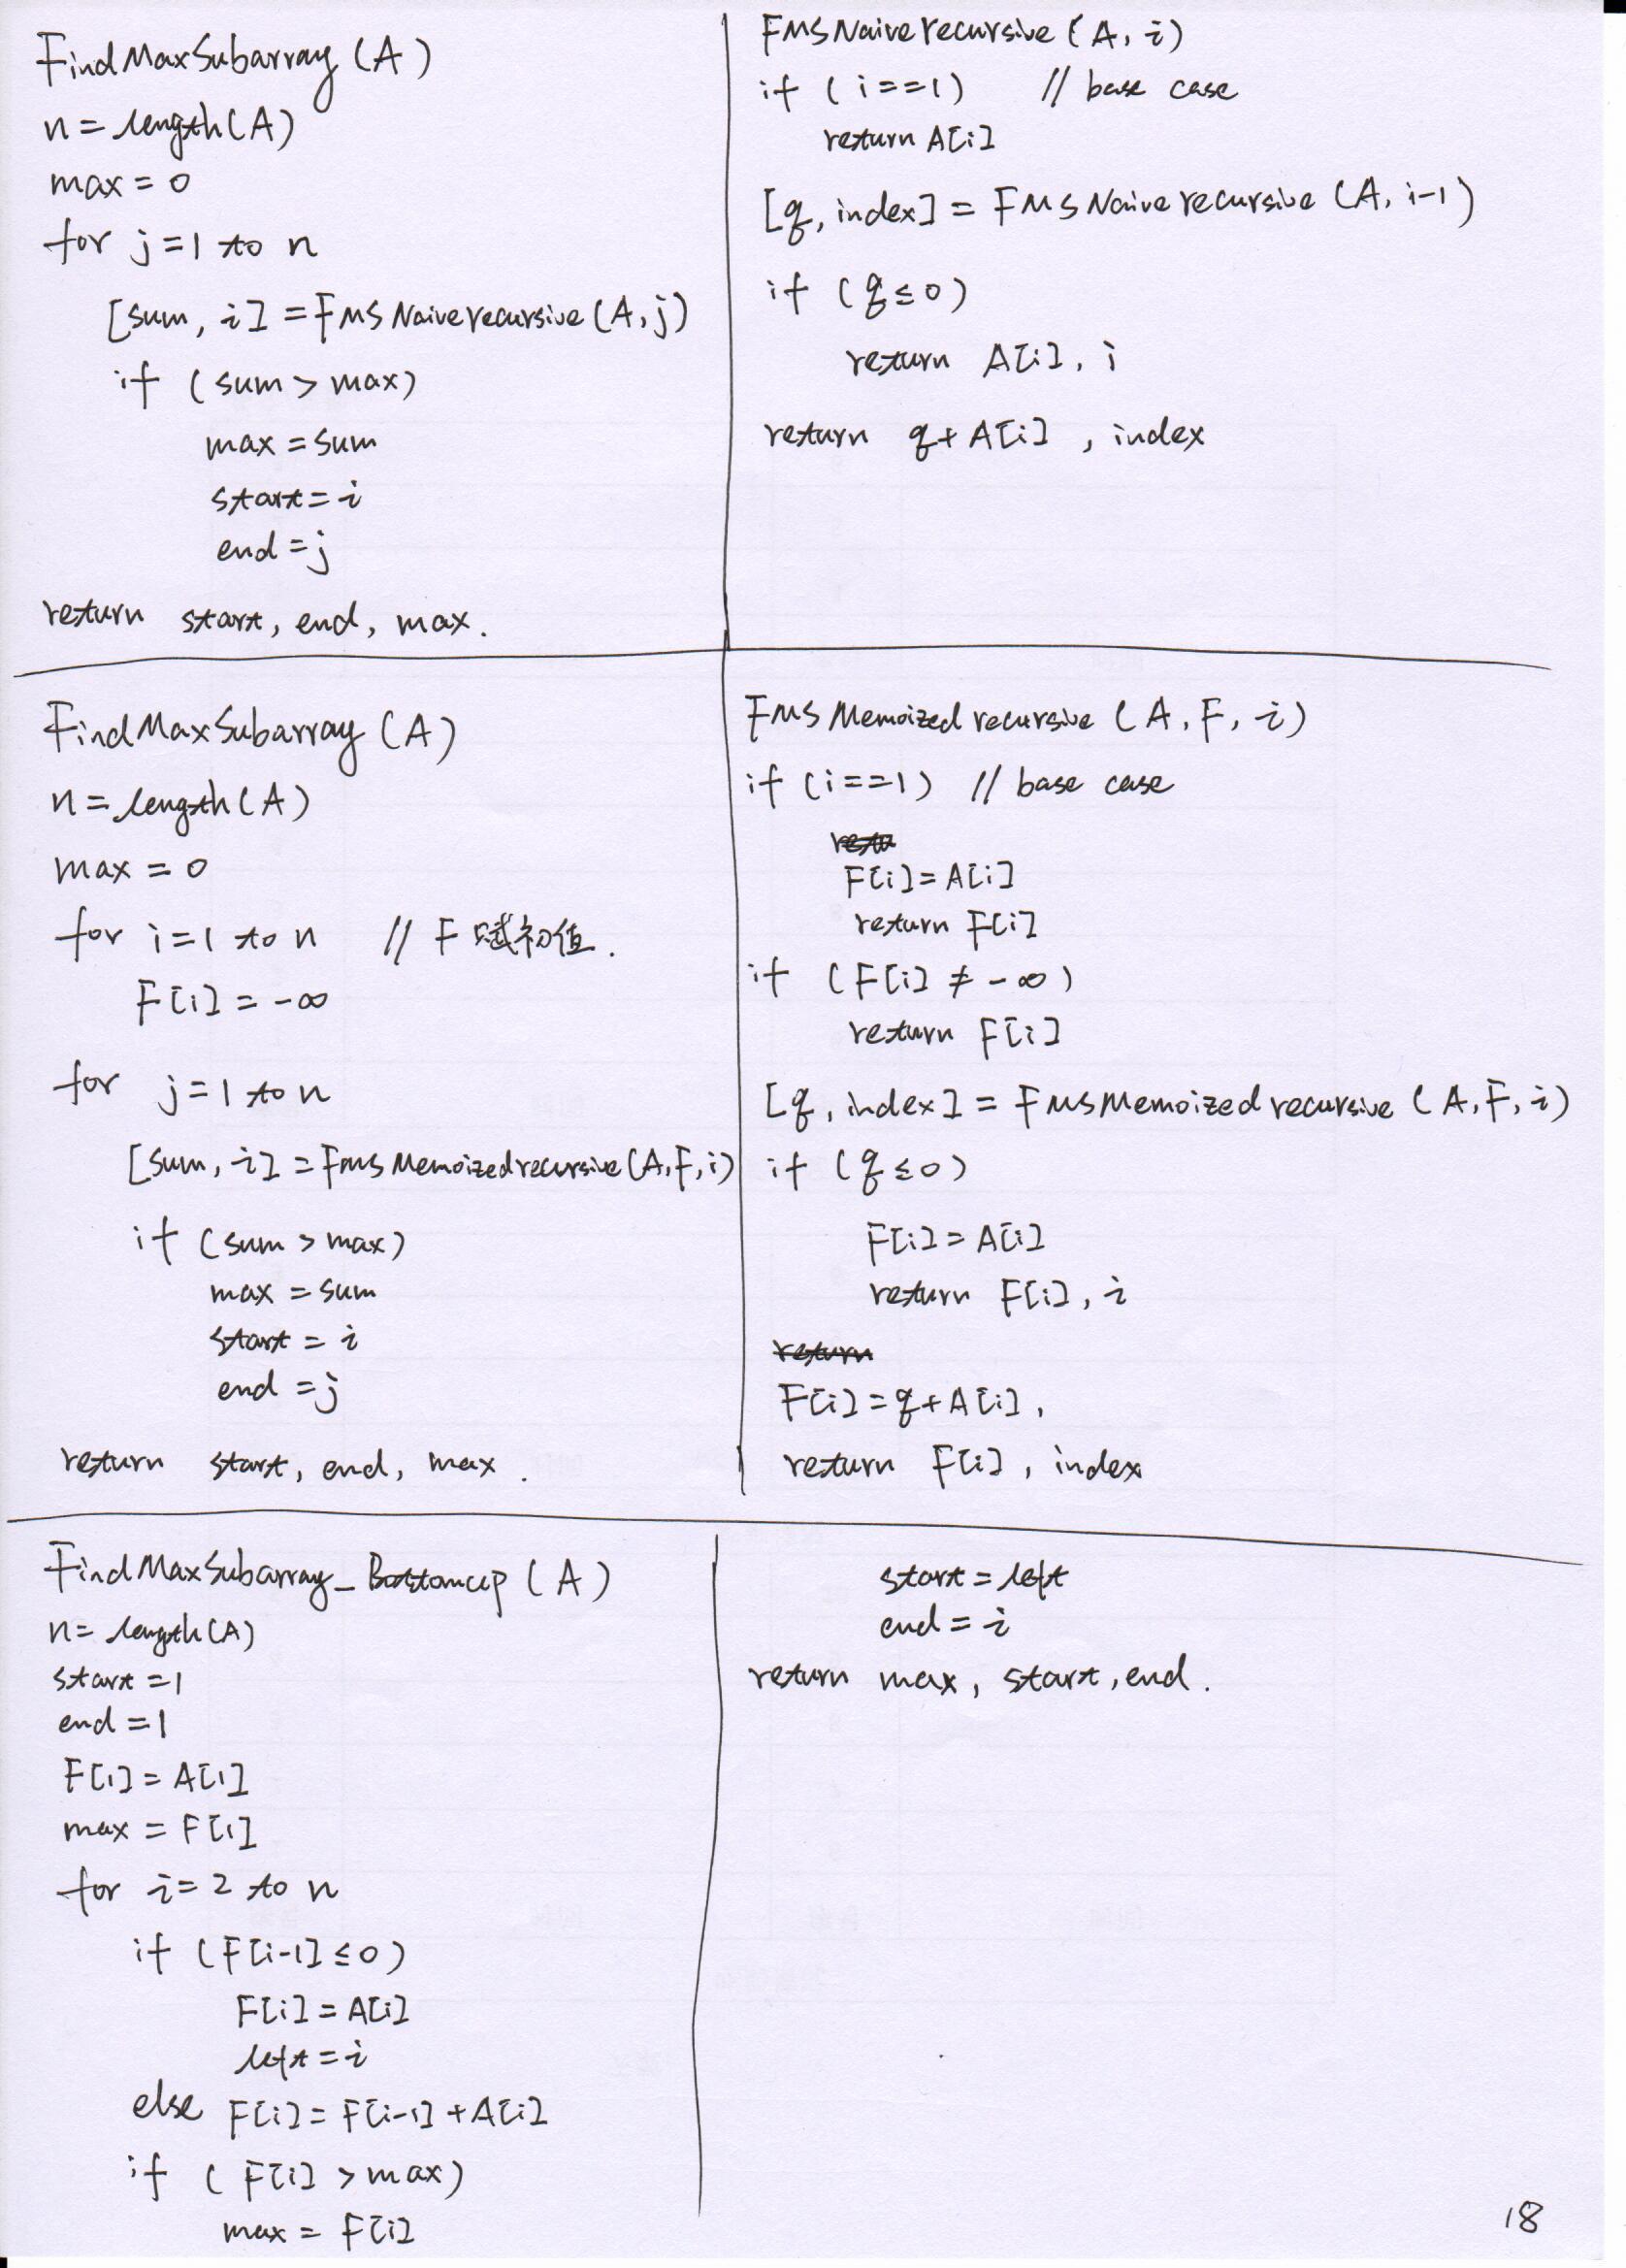 FindMaxSubarray (A)
n = length(A)
max = 0
for j=1 to n
[sum, i] = FMSNaiverecursive(A,j)
if (sum > max)
max = sum
start = i
end = j
return start, end, max.
FMSNaiverecursive (A, i)
if (i==1) // base case
return A[i]
[q, index] = FMSNaiverecursive (A, i-1)
if (q≤0)
return A[i], i
return q+A[i], index
FindMaxSubarray (A)
n = length(A)
max = 0
for i=1 to n // F赋初值.
F[i] = -∞
for j=1 to n
[sum, i] = FMSMemoizedrecursive(A,F,i)
if (sum > max)
max = sum
start = i
end = j
return start, end, max.
FMSMemoizedrecursive (A, F, i)
if (i==1) // base case
F[i]=A[i]
return F[i]
if (F[i] ≠ -∞)
return F[i]
[q, index] = FMSMemoizedrecursive (A,F,i)
if (q≤0)
F[i]=A[i]
return F[i], i
return
F[i]=q+A[i],
return F[i], index
FindMaxSubarray_Bottomup (A)
n = length(A)
start = 1
end = 1
F[1] = A[1]
max = F[1]
for i=2 to n
if (F[i-1] ≤ 0)
F[i] = A[i]
left = i
else F[i] = F[i-1] + A[i]
if (F[i] > max)
max = F[i]
start = left
end = i
return max, start, end.
18